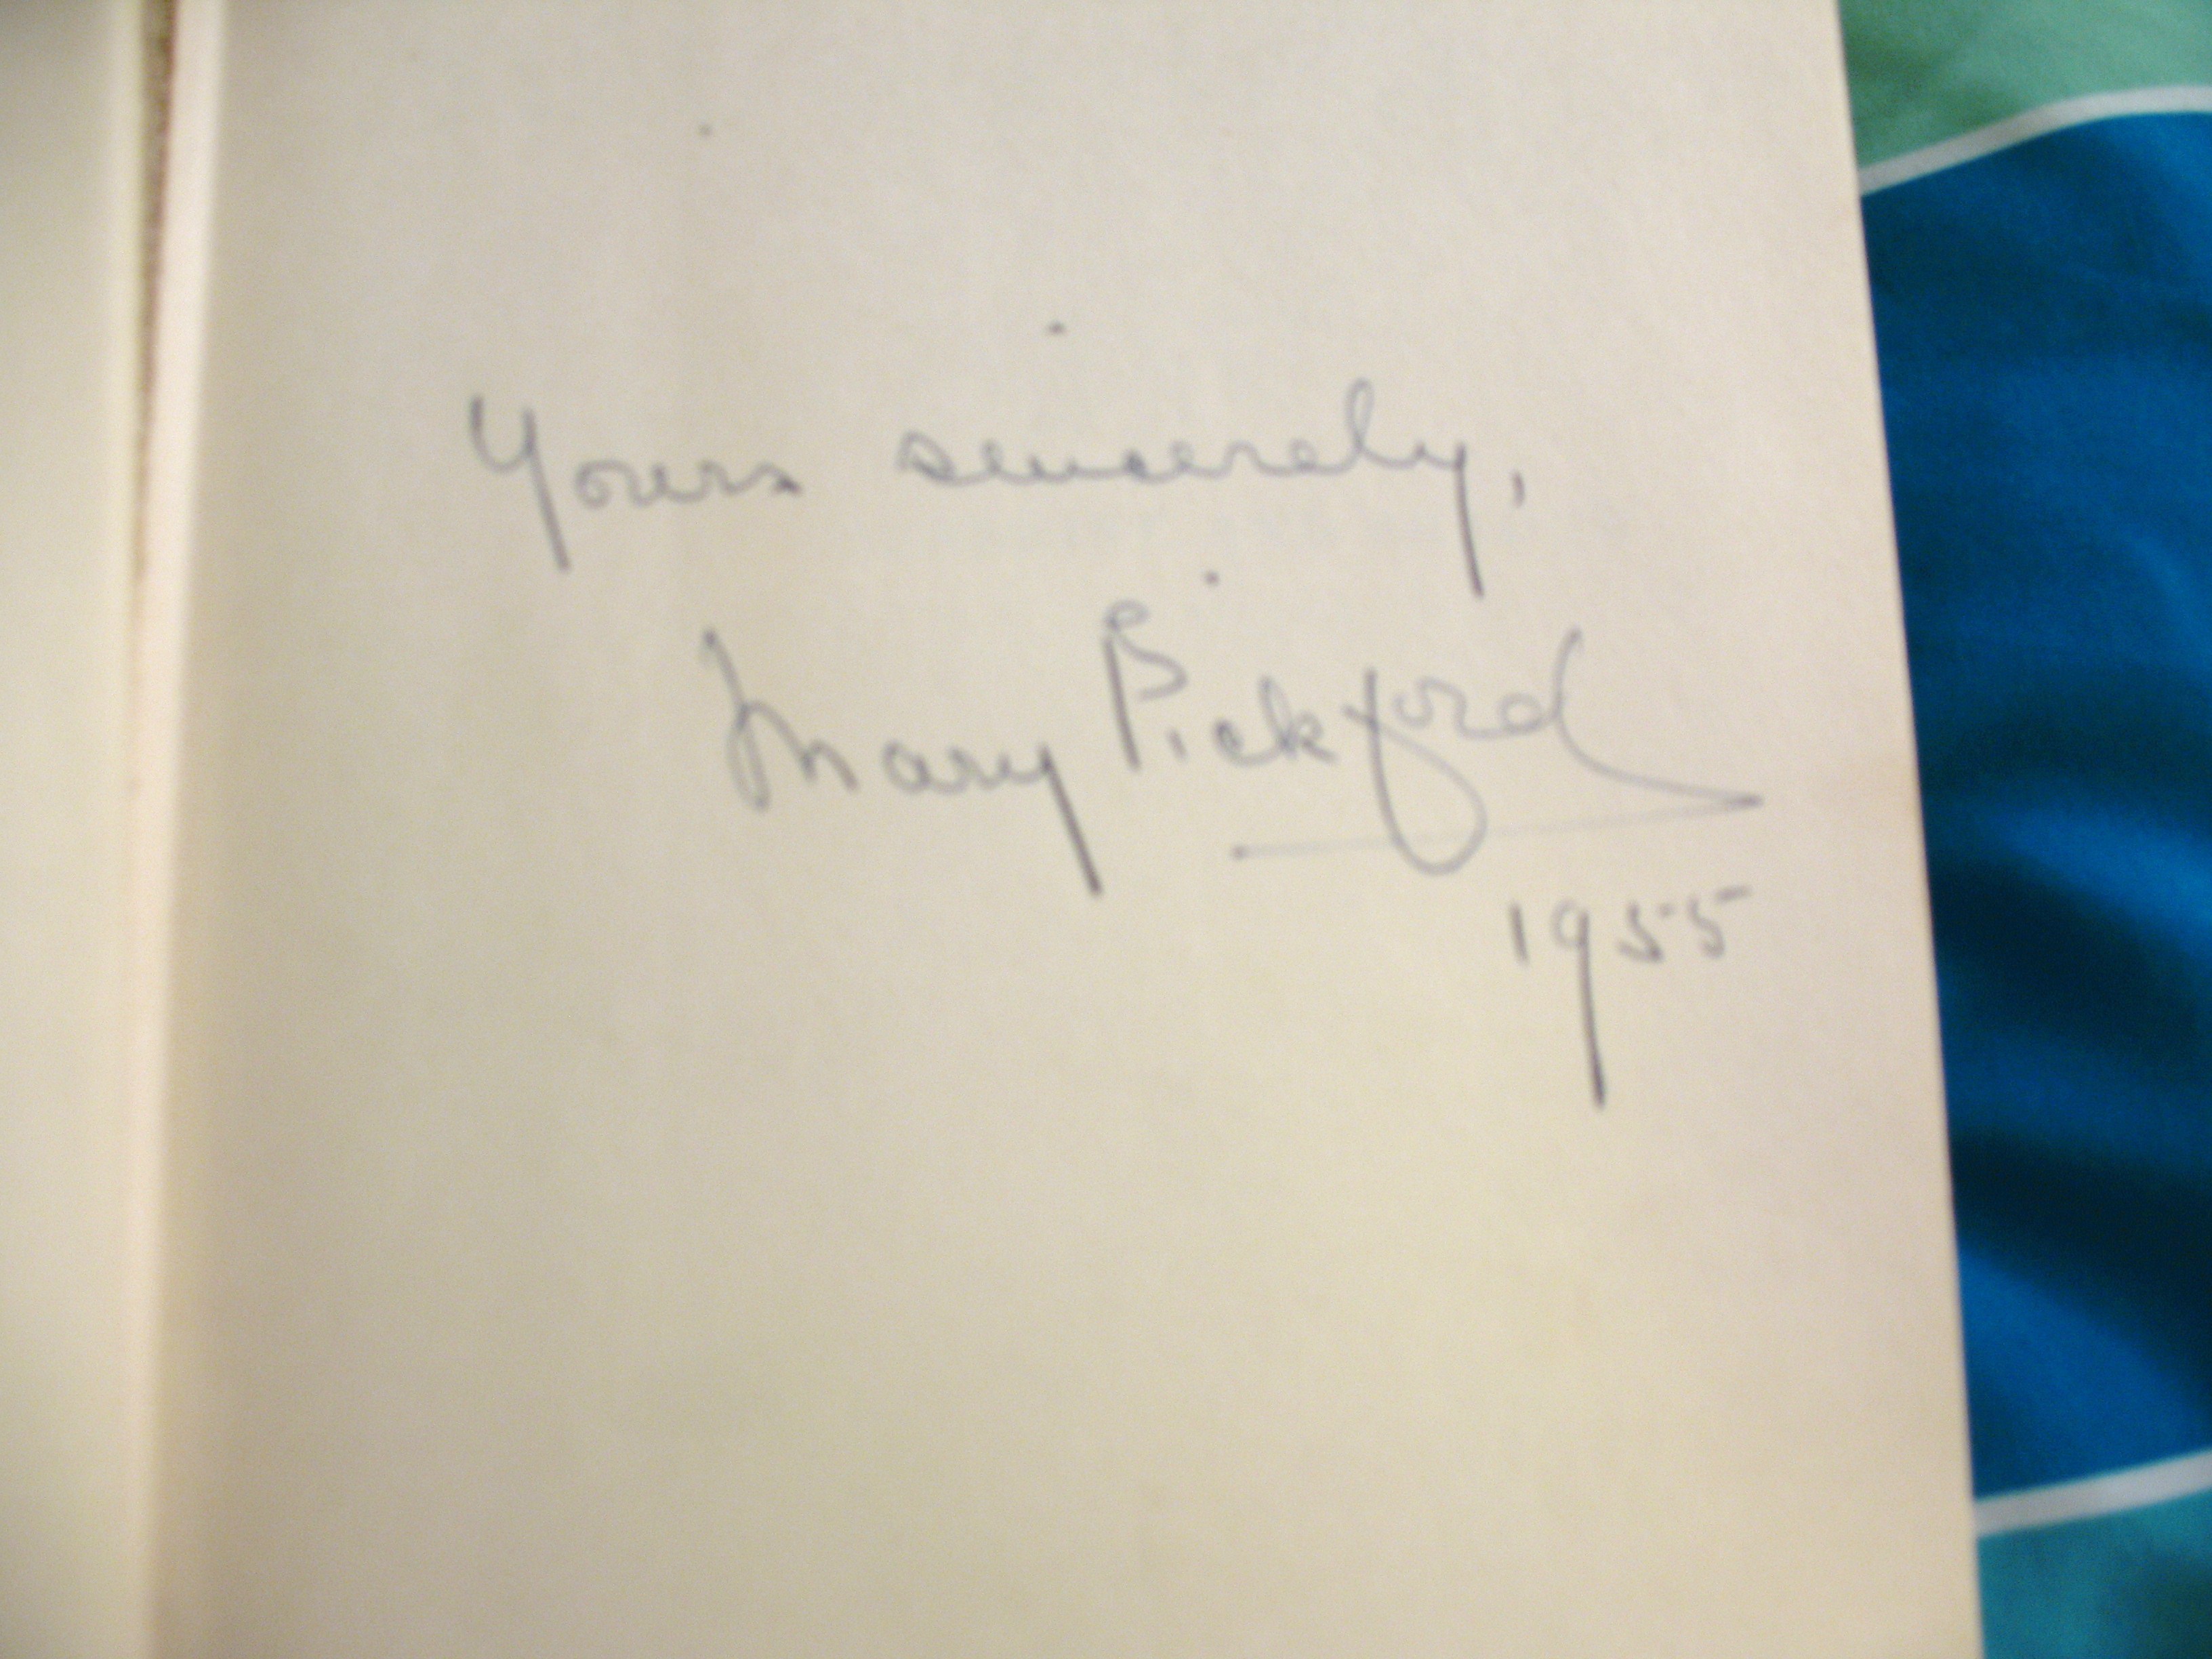 Yours sincerely,
Mary Pickford
1955